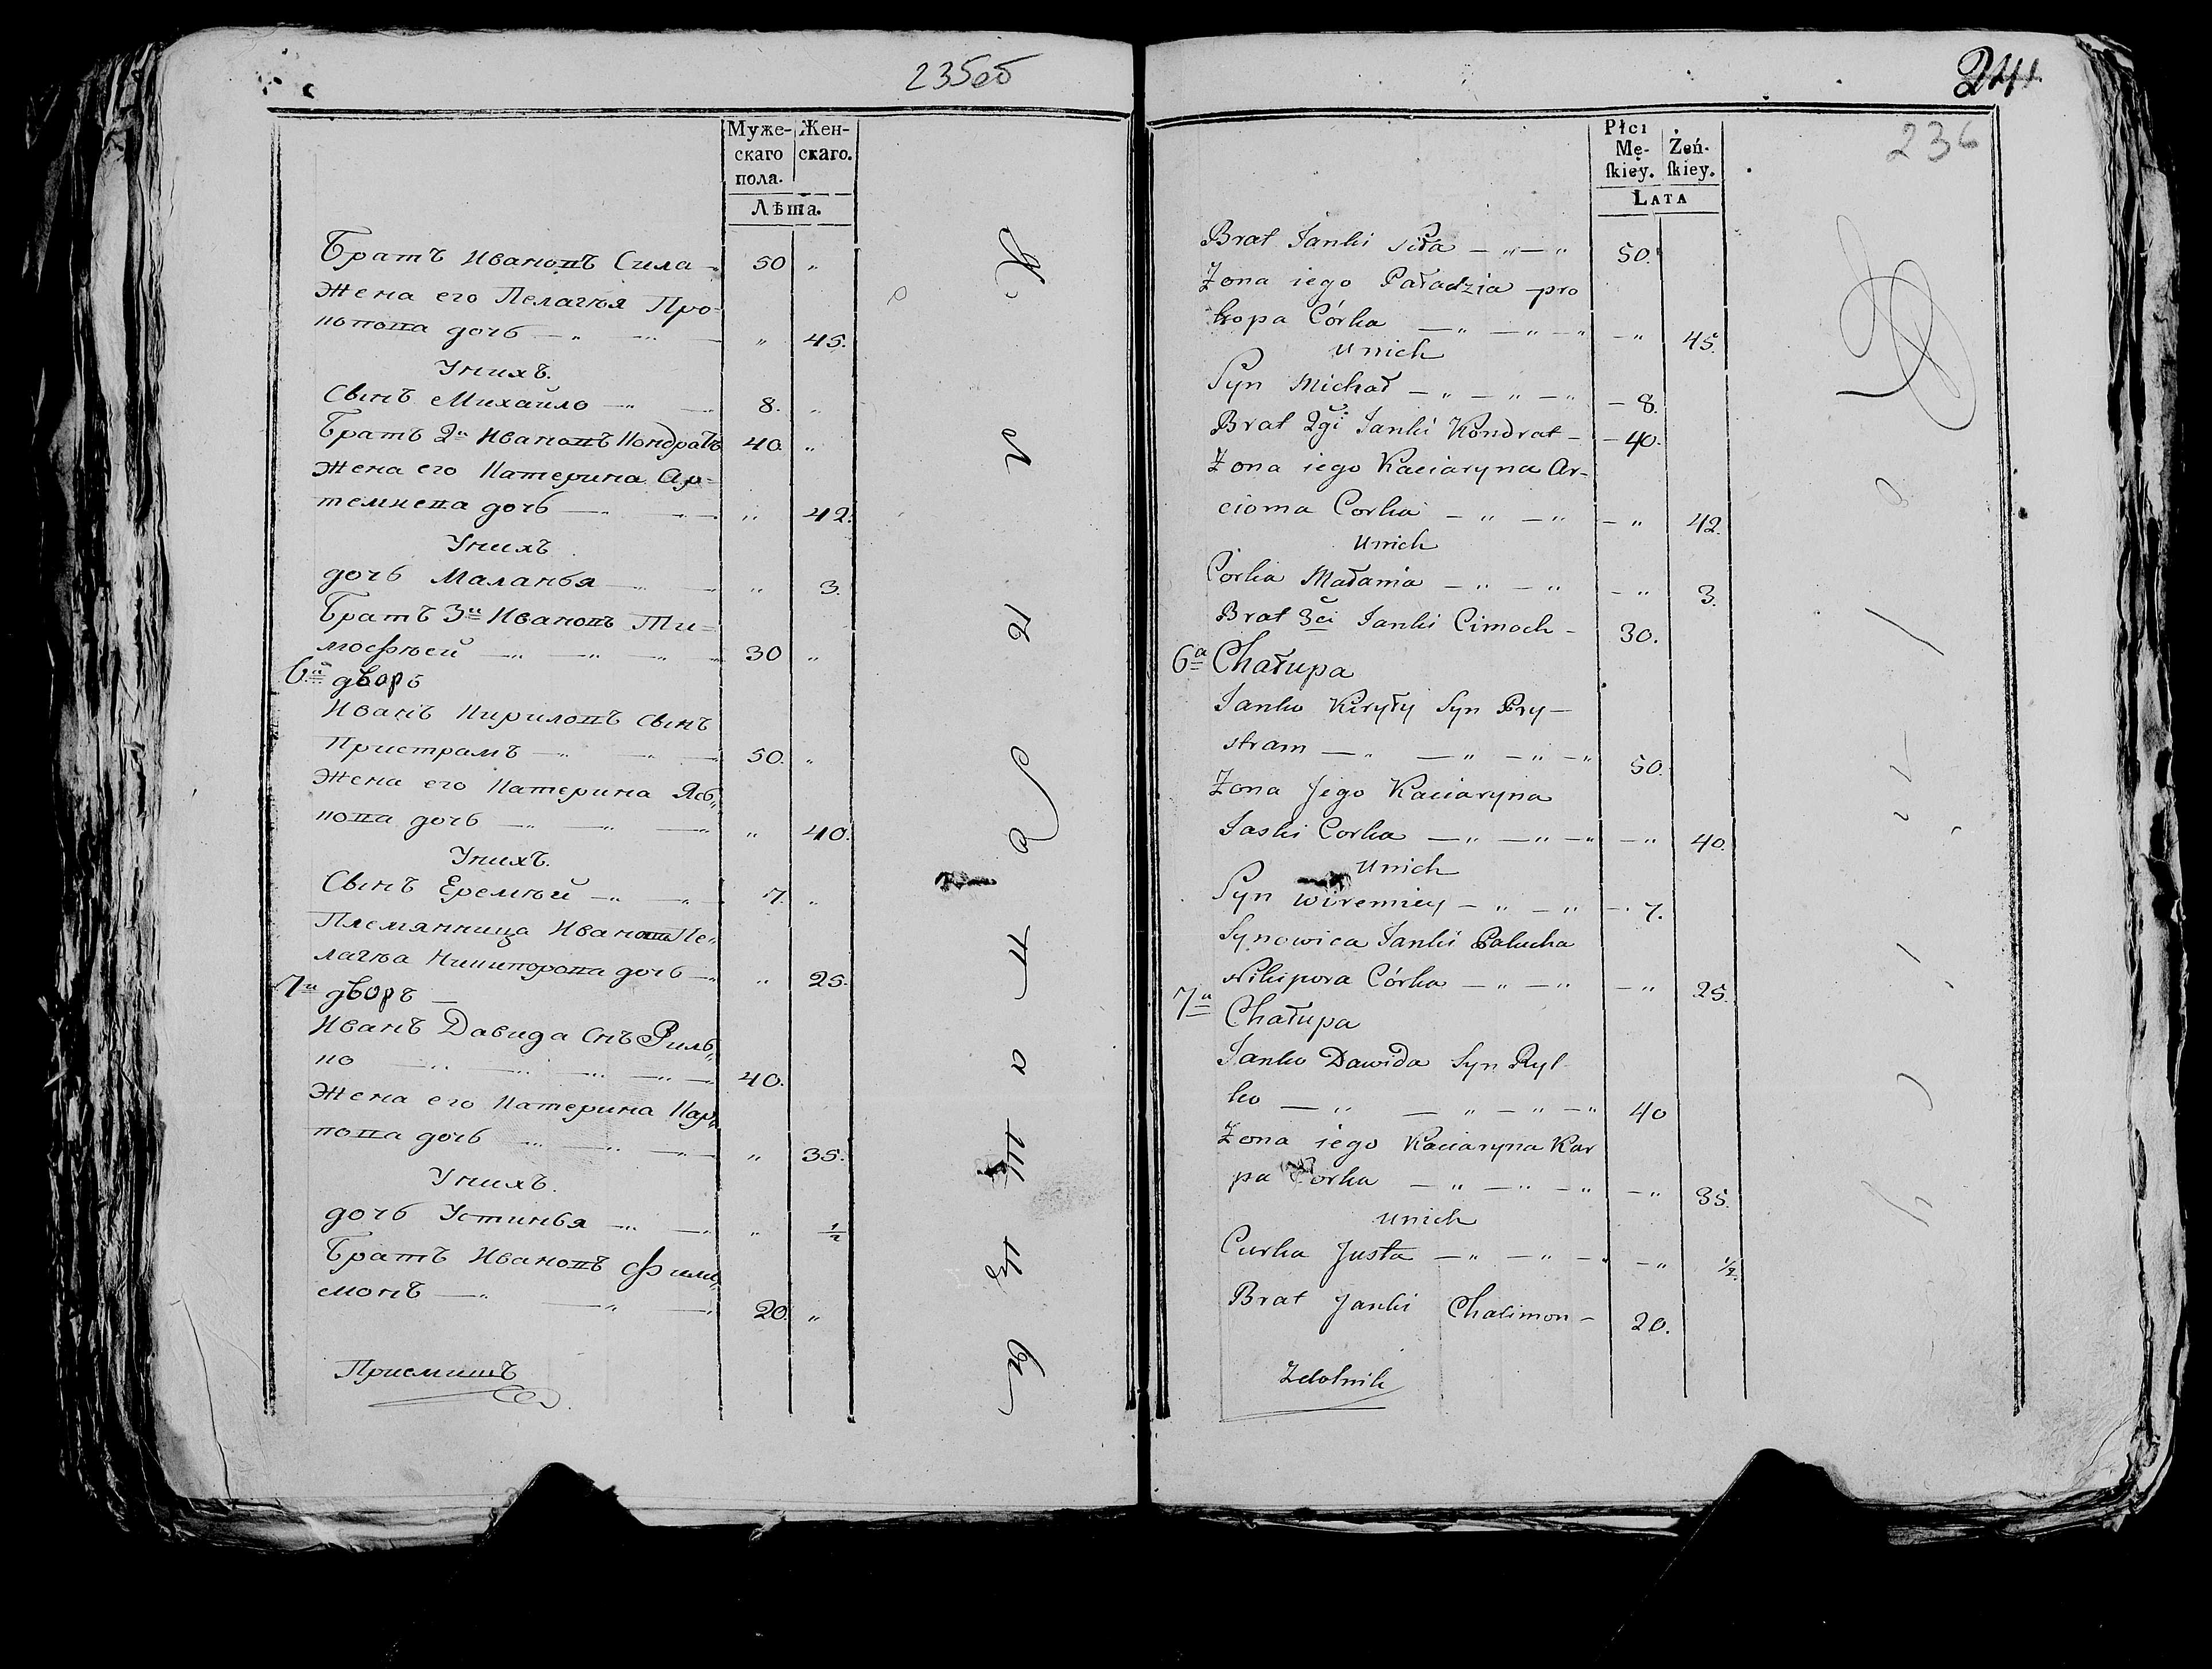 235об
Муже- Жен-
скаго скаго.
пола.
Лѣта.
Братъ Ивановъ Сила 50 "
Жена его Пелагѣя Про-
копова дочь " 45.
У нихъ.
Сынъ Михайло 8. "
Братъ 2й Ивановъ Кондратъ 40. "
Жена его Катерина Ар-
темиева дочь " 42.
У нихъ
дочь Маланья " 3.
Братъ 3й Ивановъ Ти-
мофѣей 30 "
6й дворъ
Иванъ Кириловъ Сынъ
Пристрамъ 50. "
Жена его Катерина Ясь-
кова дочь " 40.
У нихъ.
Сынъ Еремѣй 7. "
Племянница Иванова Пе-
лагѣа Никипорова дочь " 25.
7й дворъ
Иванъ Давида Снъ Риль-
ко 40.
Жена его Катерина Кар-
пова дочь " 35.
У нихъ.
дочь Устинья " 1/2
Братъ Ивановъ Фили-
монъ 20. "
241
236
Płci
Mę- Żeń-
ſkiey. ſkiey.
LATA
Brat Janki Siła 50.
Żona iego Paładzia pro
kopa Córka " 45.
U nich
Syn Michał 8.
Brat 2gi Janki Kondrat 40.
Żona iego Kaciaryna Ar-
cioma Corka " 42.
U nich
Corka Małania " 3.
Brat 3ci Janki Cimoch 30.
6a Chałupa
Janko Kiryły Syn Pry-
stram 50.
Żona Jego Kaciaryna
Jaski Corka " 40.
U nich
Syn Wiremiey 7.
Synowica Janki Pałucha
Nikipora Córka " 25.
7a Chałupa
Janko Dawida Syn Ryl
ko 40
Żona iego Kaciaryna Kar
pa Corka " 35.
U nich
Curka Justa " 1/2.
Brat Janki Chalimon 20.